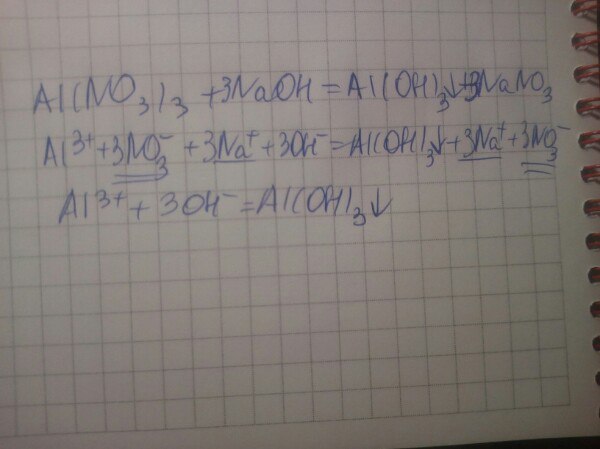 Al(NO₃)₃ + 3NaOH = Al(OH)₃↓ + 3NaNO₃
Al³⁺ + 3NO₃⁻ + 3Na⁺ + 3OH⁻ = Al(OH)₃↓ + 3Na⁺ + 3NO₃⁻
Al³⁺ + 3OH⁻ = Al(OH)₃↓